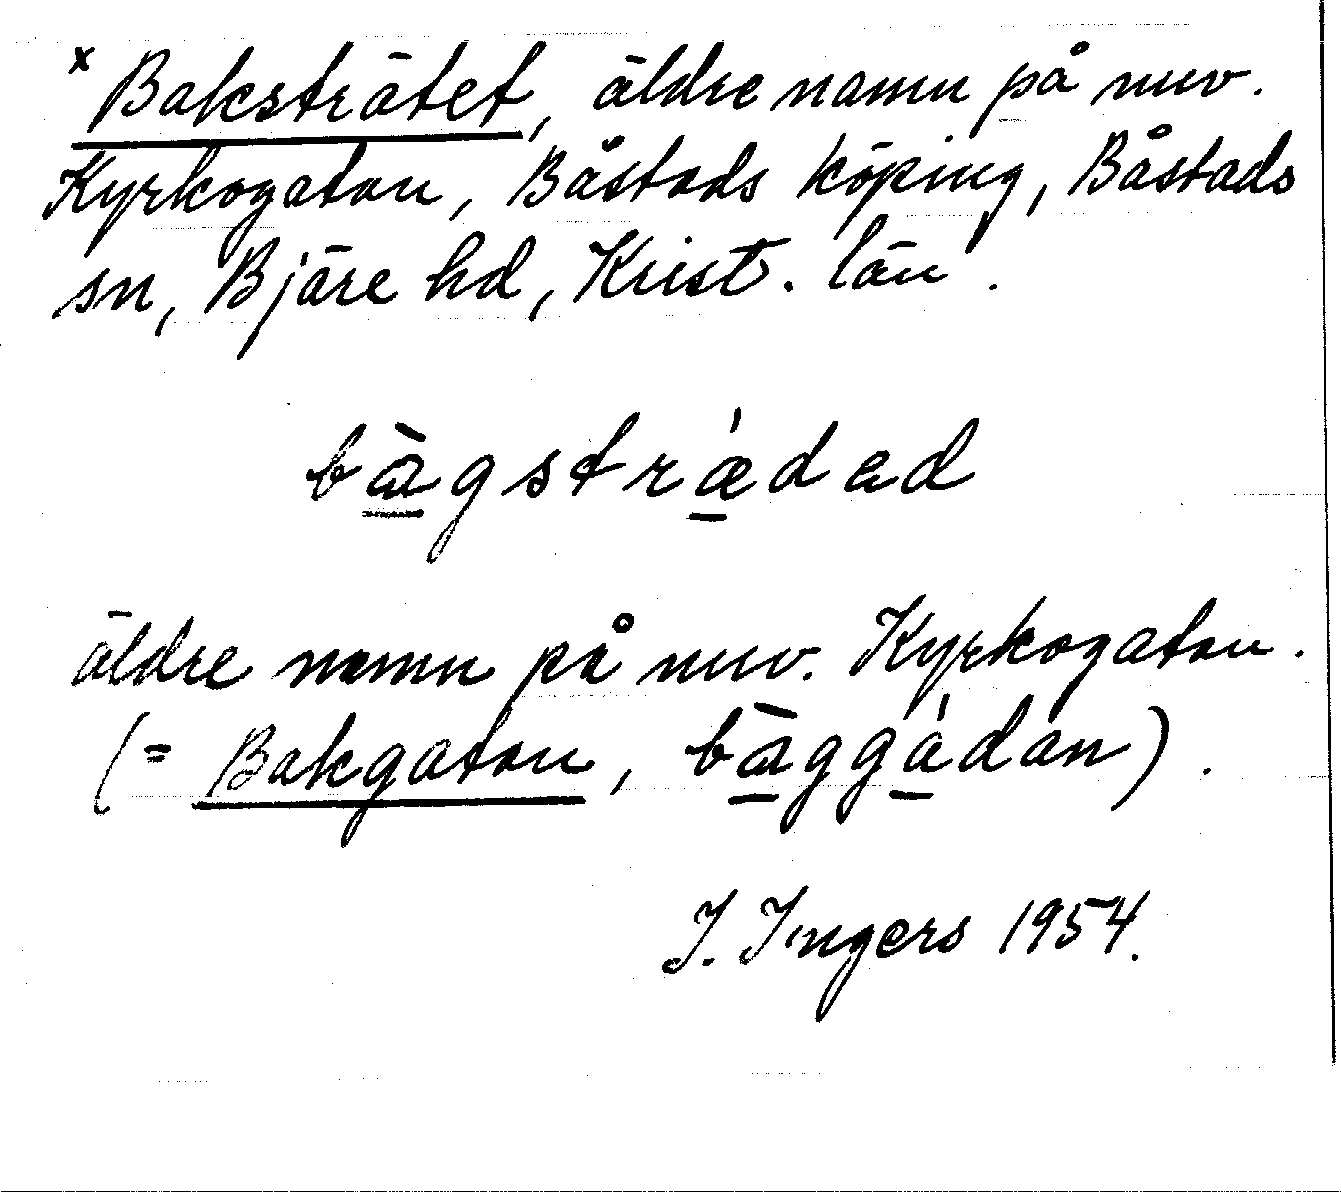 x Baksträtet, äldre namn på nuv.
Kyrkogatan, Båstads köping, Båstads
sn, Bjäre hd, Krist. län.
bàgstrǽdad
äldre namn på nuv. Kyrkogatan.
(= Bakgatan, bàggádan).
I. Ingers 1954.